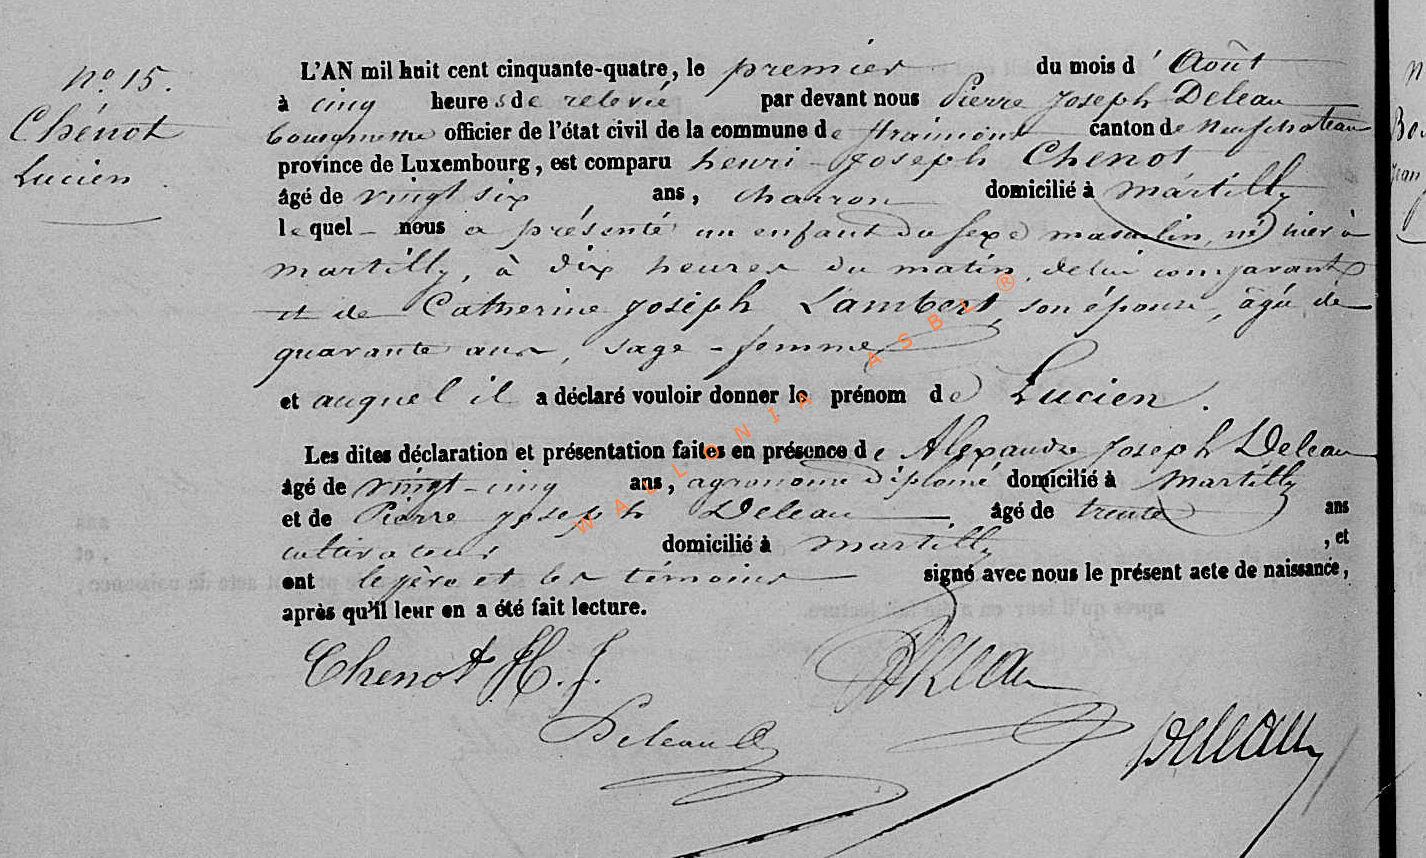 nº 15.
Chénot
Lucien
L'AN mil huit cent cinquante-quatre, le premier du mois d' Août
à cinq heures de relevée par devant nous Pierre Joseph Deleau
bourgmestre officier de l'état civil de la commune de Straimont canton de neufchateau
province de Luxembourg, est comparu henri-Joseph Chenot
âgé de vingt six ans, charron domicilié à martilly
le quel nous a présenté un enfant du sexe masculin, né hier à
martilly, à dix heures du matin, de lui comparant
et de Catherine Joseph Lambert, son épouse, âgée de
quarante ans, sage-femme
et auquel il a déclaré vouloir donner le prénom de Lucien.
Les dites déclaration et présentation faites en présence de Alexandre Joseph Deleau
âgé de vingt-cinq ans, agronome diplomé domicilié à Martilly
et de Pierre Joseph Deleau âgé de trente ans
cultivateur domicilié à martilly, et
ont le père et les témoins signé avec nous le présent acte de naissance,
après qu'il leur en a été fait lecture.
Chenot H. J.
Deleau
Deleau
Deleau
WALLONIA ASBL ®